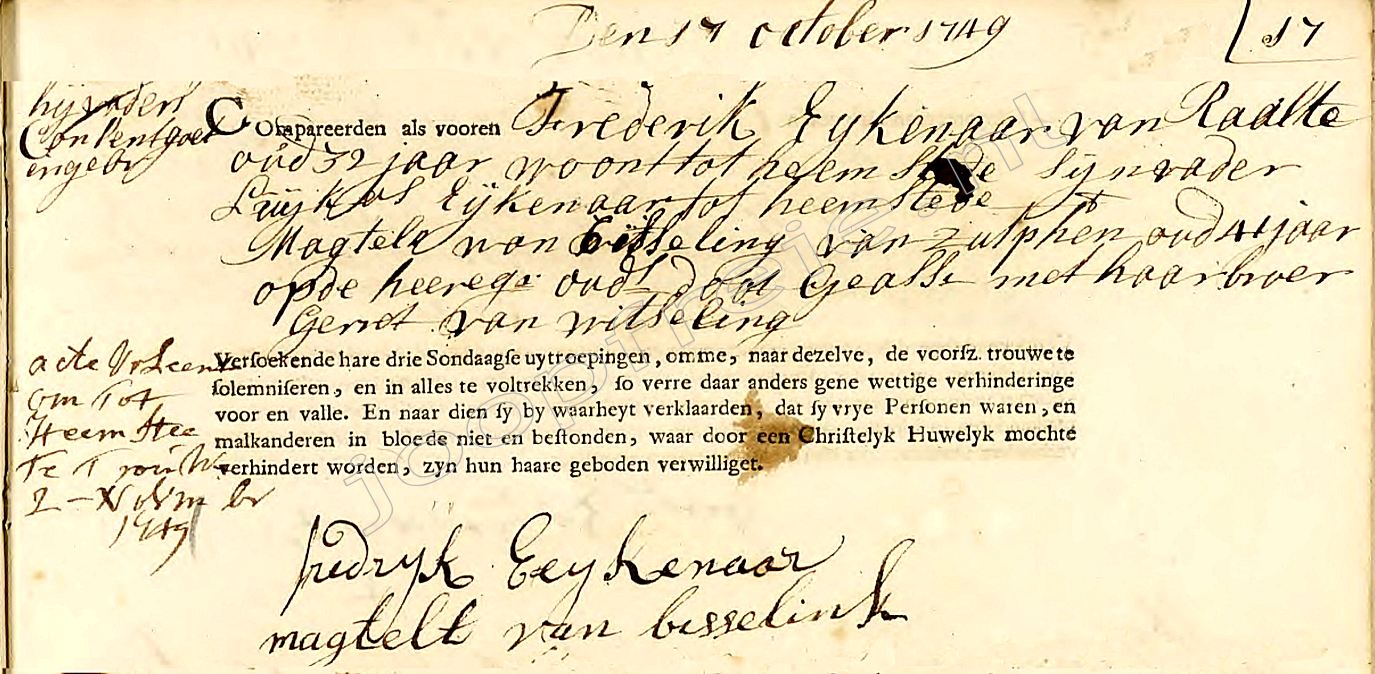 Den 17 october 1749
17
hijvaders
Consent goet
ingebr
COmpareerden als vooren Frederik Eykenaar van Raalte
oud 32 jaar woont tot heemstede sijn vader
Luijkas Eijkenaar tot heemstede
Magtelt van Bisseling van Zutphen oud 41 jaar
op de heerege oud doot geasst met haar broer
Gerrit van witseling
Versoekende hare drie Sondaagſe uytroepingen, omme, naar dezelve, de voorſz. trouwe te
ſolemniſeren, en in alles te voltrekken, ſo verre daar anders gene wettige verhinderinge
voor en valle. En naar dien ſy by waarheyt verklaarden, dat ſy vrye Perſonen waren, en
malkanderen in bloede niet en beſtonden, waar door een Chriſtelyk Huwelyk mochte
verhindert worden, zyn hun haare geboden verwilliget.
acte Vrleent
om Tot
Heemstee
Te Trouw
2 - Novembr
1749
fredryk Eeykenaar
magtelt van bisselink
jooptreiz.nl